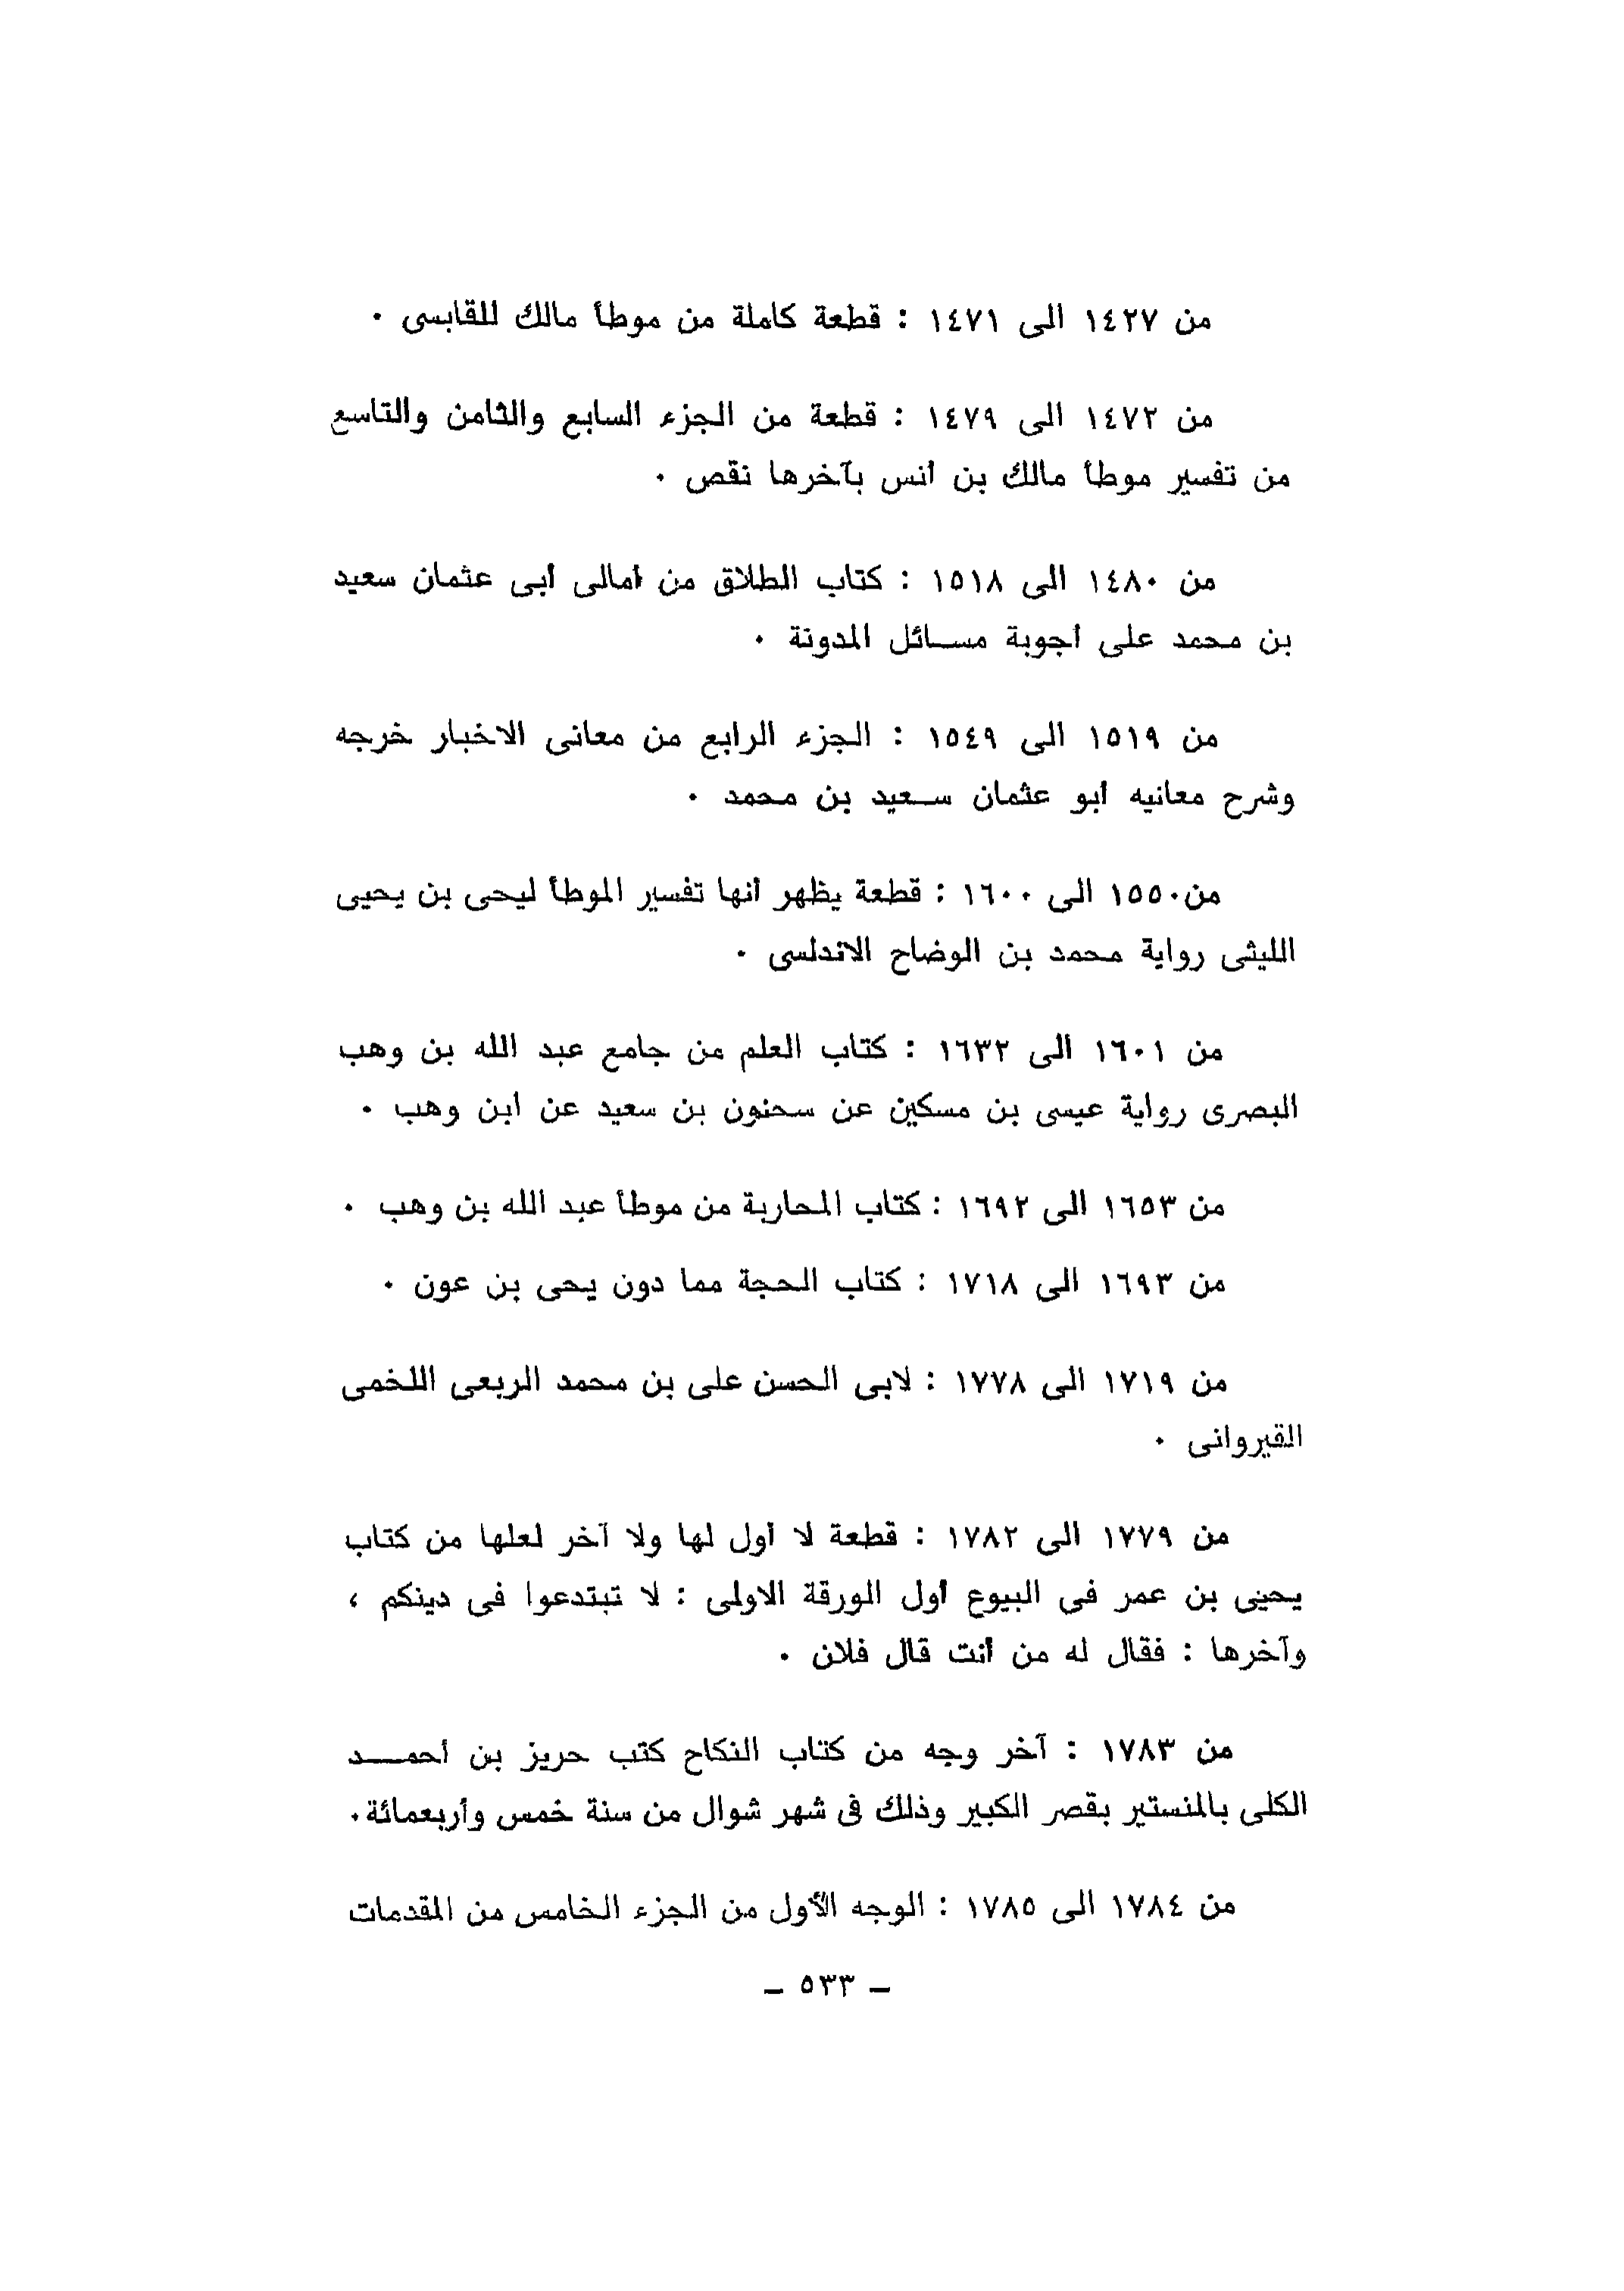 من ١٤٢٧ الى ١٤٧١ : قطعة كاملة من موطأ مالك للقابسى .
من ١٤٧٢ الى ١٤٧٩ : قطعة من الجزء السابع والثامن والتاسع
من تفسير موطأ مالك بن أنس بآخرها نقص .
من ١٤٨٠ الى ١٥١٨ : كتاب الطلاق من أمالى أبى عثمان سعيد
بن محمد على أجوبة مسائل المدونة .
من ١٥١٩ الى ١٥٤٩ : الجزء الرابع من معانى الاخبار خرجه
وشرح معانيه أبو عثمان سعيد بن محمد .
من ١٥٥٠ الى ١٦٠٠ : قطعة يظهر أنها تفسير الموطأ ليحى بن يحيى
الليثى رواية محمد بن الوضاح الاندلسى .
من ١٦٠١ الى ١٦٣٢ : كتاب العلم من جامع عبد الله بن وهب
البصرى رواية عيسى بن مسكين عن سحنون بن سعيد عن ابن وهب .
من ١٦٥٣ الى ١٦٩٢ : كتاب المحاربة من موطأ عبد الله بن وهب .
من ١٦٩٣ الى ١٧١٨ : كتاب الحجة مما دون يحى بن عون .
من ١٧١٩ الى ١٧٧٨ : لابى الحسن على بن محمد الربعى اللخمى
القيروانى .
من ١٧٧٩ الى ١٧٨٢ : قطعة لا أول لها ولا آخر لعلها من كتاب
يحيى بن عمر فى البيوع أول الورقة الاولى : لا تبتدعوا فى دينكم ،
وآخرها : فقال له من أنت قال فلان .
من ١٧٨٣ : آخر وجه من كتاب النكاح كتب حريز بن أحمــد
الكلى بالمنستير بقصر الكبير وذلك فى شهر شوال من سنة خمس وأربعمائة.
من ١٧٨٤ الى ١٧٨٥ : الوجه الأول من الجزء الخامس من المقدمات
– ٥٣٣ –